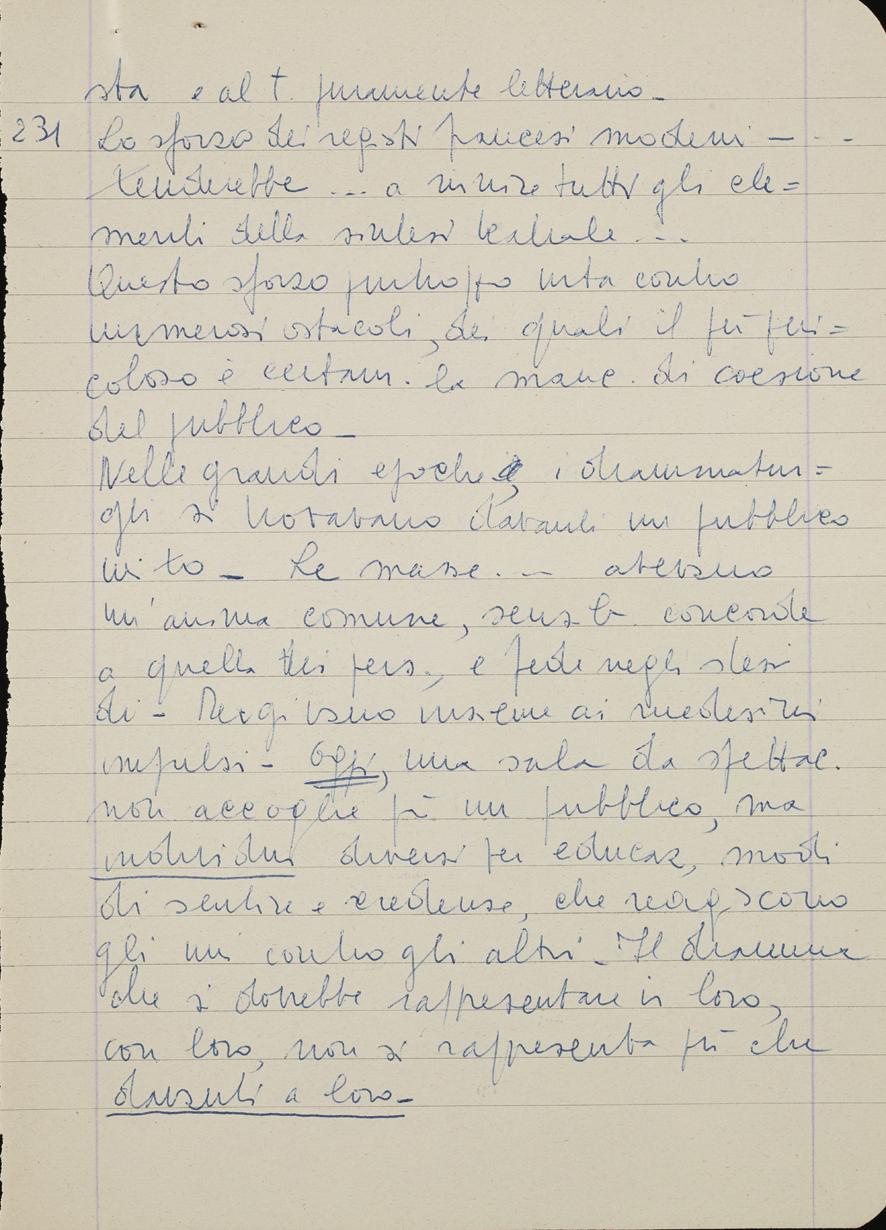 sta e al t. puramente letterario -
231 Lo sforzo dei registi francesi moderni - - -
tenderebbe ... a riunire tutti gli ele=
menti della sintesi teatrale ...
Questo sforzo purtroppo urta contro
numerosi ostacoli, dei quali il più peri=
coloso è certam. la manc. di coesione
del pubblico -
Nelle grandi epoche, i drammatur=
ghi si trovavano davanti un pubblico
unito - Le masse ... avevano
un'anima comune, sensib. concorde
a quella dei pers., e fede negli stessi
di - Reagivano insieme ai medesimi
impulsi - Oggi, una sala da spettac.
non accoglie più un pubblico, ma
individui diversi per educaz, modi
di sentire e credenze, che reagiscono
gli uni contro gli altri - Il dramma
che si dovrebbe rappresentare in loro,
con loro, non si rappresenta più che
davanti a loro -